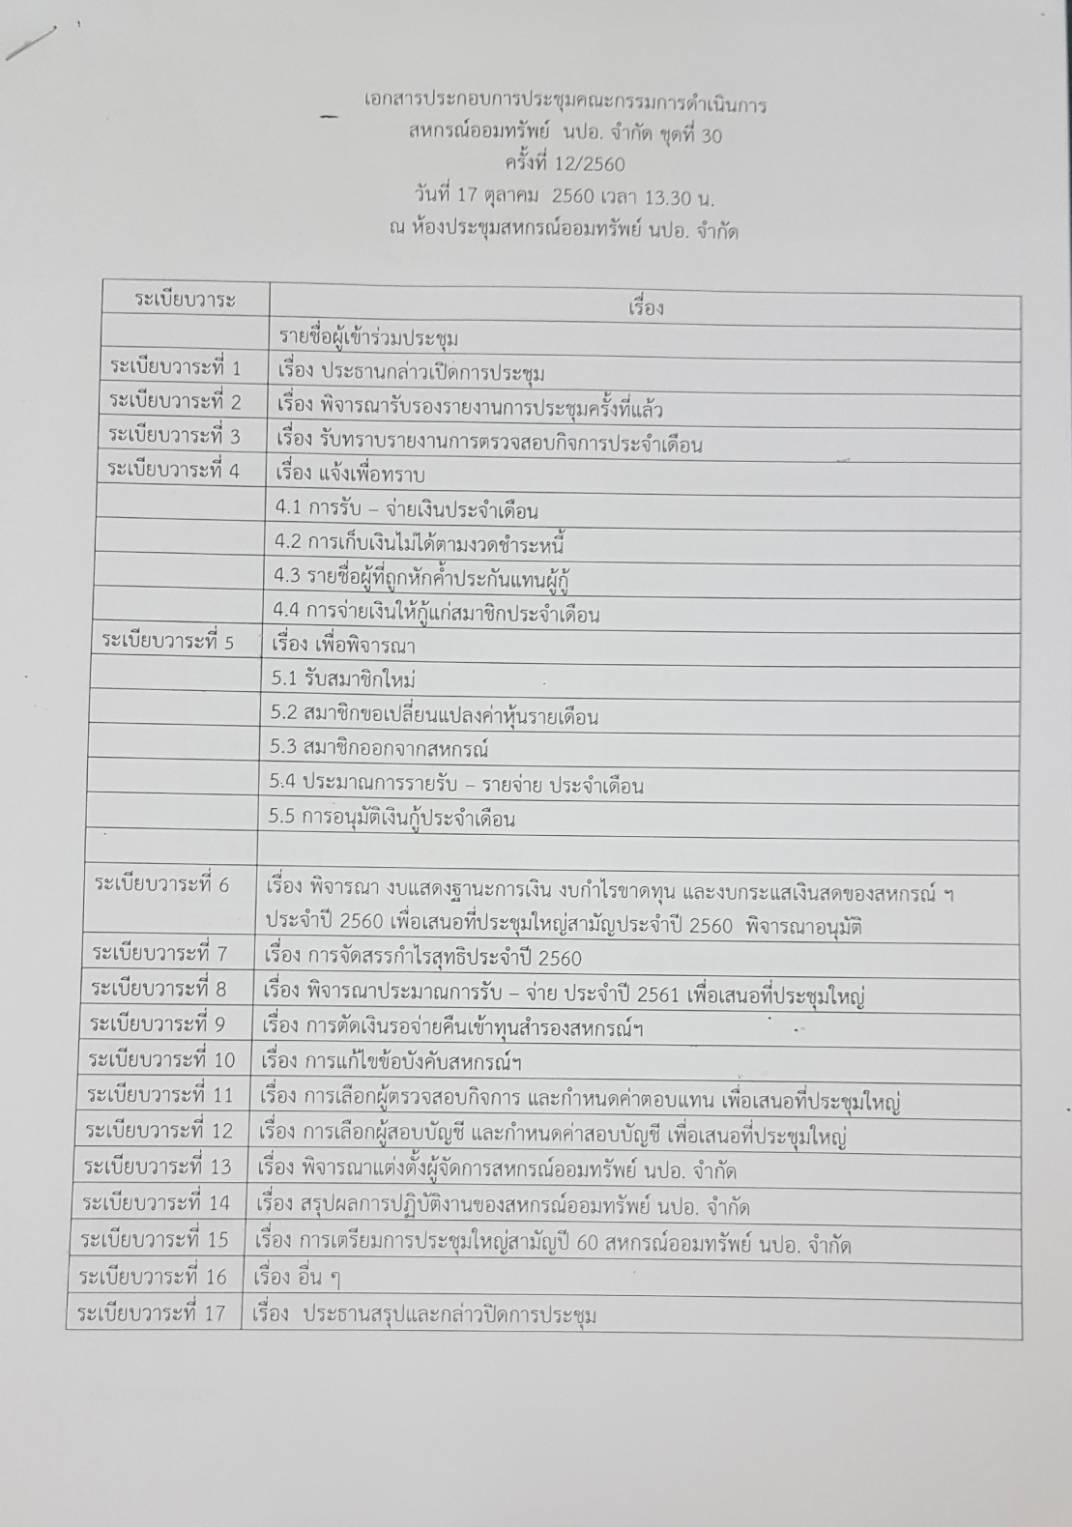 เอกสารประกอบการประชุมคณะกรรมการดำเนินการ
สหกรณ์ออมทรัพย์ นปอ. จำกัด ชุดที่ 30
ครั้งที่ 12/2560
วันที่ 17 ตุลาคม 2560 เวลา 13.30 น.
ณ ห้องประชุมสหกรณ์ออมทรัพย์ นปอ. จำกัด
ระเบียบวาระ เรื่อง
รายชื่อผู้เข้าร่วมประชุม
ระเบียบวาระที่ 1 เรื่อง ประธานกล่าวเปิดการประชุม
ระเบียบวาระที่ 2 เรื่อง พิจารณารับรองรายงานการประชุมครั้งที่แล้ว
ระเบียบวาระที่ 3 เรื่อง รับทราบรายงานการตรวจสอบกิจการประจำเดือน
ระเบียบวาระที่ 4 เรื่อง แจ้งเพื่อทราบ
4.1 การรับ – จ่ายเงินประจำเดือน
4.2 การเก็บเงินไม่ได้ตามงวดชำระหนี้
4.3 รายชื่อผู้ที่ถูกหักค้ำประกันแทนผู้กู้
4.4 การจ่ายเงินให้กู้แก่สมาชิกประจำเดือน
ระเบียบวาระที่ 5 เรื่อง เพื่อพิจารณา
5.1 รับสมาชิกใหม่
5.2 สมาชิกขอเปลี่ยนแปลงค่าหุ้นรายเดือน
5.3 สมาชิกออกจากสหกรณ์
5.4 ประมาณการรายรับ – รายจ่าย ประจำเดือน
5.5 การอนุมัติเงินกู้ประจำเดือน
ระเบียบวาระที่ 6 เรื่อง พิจารณา งบแสดงฐานะการเงิน งบกำไรขาดทุน และงบกระแสเงินสดของสหกรณ์ ฯ
ประจำปี 2560 เพื่อเสนอที่ประชุมใหญ่สามัญประจำปี 2560 พิจารณาอนุมัติ
ระเบียบวาระที่ 7 เรื่อง การจัดสรรกำไรสุทธิประจำปี 2560
ระเบียบวาระที่ 8 เรื่อง พิจารณาประมาณการรับ – จ่าย ประจำปี 2561 เพื่อเสนอที่ประชุมใหญ่
ระเบียบวาระที่ 9 เรื่อง การตัดเงินรอจ่ายคืนเข้าทุนสำรองสหกรณ์ฯ
ระเบียบวาระที่ 10 เรื่อง การแก้ไขข้อบังคับสหกรณ์ฯ
ระเบียบวาระที่ 11 เรื่อง การเลือกผู้ตรวจสอบกิจการ และกำหนดค่าตอบแทน เพื่อเสนอที่ประชุมใหญ่
ระเบียบวาระที่ 12 เรื่อง การเลือกผู้สอบบัญชี และกำหนดค่าสอบบัญชี เพื่อเสนอที่ประชุมใหญ่
ระเบียบวาระที่ 13 เรื่อง พิจารณาแต่งตั้งผู้จัดการสหกรณ์ออมทรัพย์ นปอ. จำกัด
ระเบียบวาระที่ 14 เรื่อง สรุปผลการปฏิบัติงานของสหกรณ์ออมทรัพย์ นปอ. จำกัด
ระเบียบวาระที่ 15 เรื่อง การเตรียมการประชุมใหญ่สามัญปี 60 สหกรณ์ออมทรัพย์ นปอ. จำกัด
ระเบียบวาระที่ 16 เรื่อง อื่น ๆ
ระเบียบวาระที่ 17 เรื่อง ประธานสรุปและกล่าวปิดการประชุม